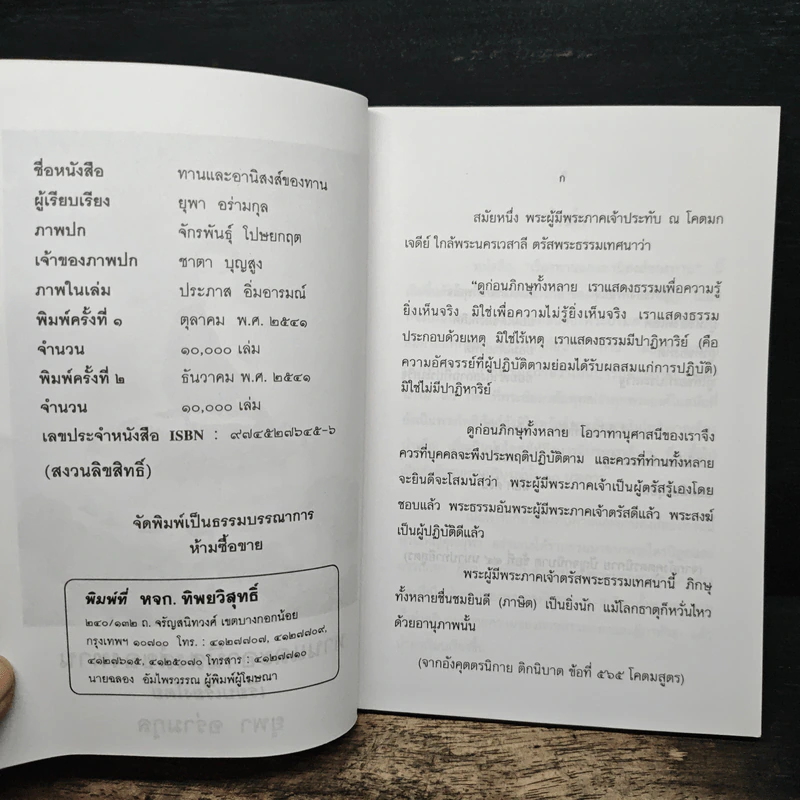 ชื่อหนังสือ ทานและอานิสงส์ของทาน
ผู้เรียบเรียง ยุพา อร่ามกุล
ภาพปก จักรพันธุ์ โปษยกฤต
เจ้าของภาพปก ชาตา บุญสูง
ภาพในเล่ม ประภาส อิ่มอารมณ์
พิมพ์ครั้งที่ ๑ ตุลาคม พ.ศ. ๒๕๔๑
จำนวน ๑๐,๐๐๐ เล่ม
พิมพ์ครั้งที่ ๒ ธันวาคม พ.ศ. ๒๕๔๑
จำนวน ๑๐,๐๐๐ เล่ม
เลขประจำหนังสือ ISBN : ๙๗๔๕๒๗๖๔๕-๖
(สงวนลิขสิทธิ์)
จัดพิมพ์เป็นธรรมบรรณาการ
ห้ามซื้อขาย
พิมพ์ที่ หจก. ทิพยวิสุทธิ์
๒๔๐/๑๓๒ ถ. จรัญสนิทวงศ์ เขตบางกอกน้อย
กรุงเทพฯ ๑๐๗๐๐ โทร. : ๔๑๒๗๗๐๗, ๔๑๒๗๗๐๙,
๔๑๒๗๖๑๕, ๔๑๒๕๐๗๐ โทรสาร : ๔๑๒๗๗๑๐
นายฉลอง อัมไพรวรรณ ผู้พิมพ์ผู้โฆษณา
ก
สมัยหนึ่ง พระผู้มีพระภาคเจ้าประทับ ณ โคตมก
เจดีย์ ใกล้พระนครเวสาลี ตรัสพระธรรมเทศนาว่า
"ดูก่อนภิกษุทั้งหลาย เราแสดงธรรมเพื่อความรู้
ยิ่งเห็นจริง มิใช่เพื่อความไม่รู้ยิ่งเห็นจริง เราแสดงธรรม
ประกอบด้วยเหตุ มิใช่ไร้เหตุ เราแสดงธรรมมีปาฏิหาริย์ (คือ
ความอัศจรรย์ที่ผู้ปฏิบัติตามย่อมได้รับผลสมแก่การปฏิบัติ)
มิใช่ไม่มีปาฏิหาริย์
ดูก่อนภิกษุทั้งหลาย โอวาทานุศาสนีของเราจึง
ควรที่บุคคลจะพึงประพฤติปฏิบัติตาม และควรที่ท่านทั้งหลาย
จะยินดีจะโสมนัสว่า พระผู้มีพระภาคเจ้าเป็นผู้ตรัสรู้เองโดย
ชอบแล้ว พระธรรมอันพระผู้มีพระภาคเจ้าตรัสดีแล้ว พระสงฆ์
เป็นผู้ปฏิบัติดีแล้ว
พระผู้มีพระภาคเจ้าตรัสพระธรรมเทศนานี้ ภิกษุ
ทั้งหลายชื่นชมยินดี (ภาษิต) เป็นยิ่งนัก แม้โลกธาตุก็หวั่นไหว
ด้วยอานุภาพนั้น
(จากอังคุตตรนิกาย ติกนิบาต ข้อที่ ๕๖๕ โคตมสูตร)